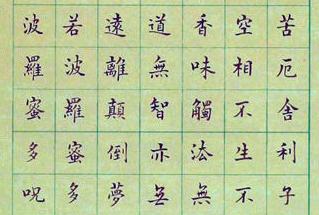 苦厄舍利子
空相不生不
香味觸法無
道無智亦無
遠離顛倒夢
若波羅蜜多
波羅蜜多呪